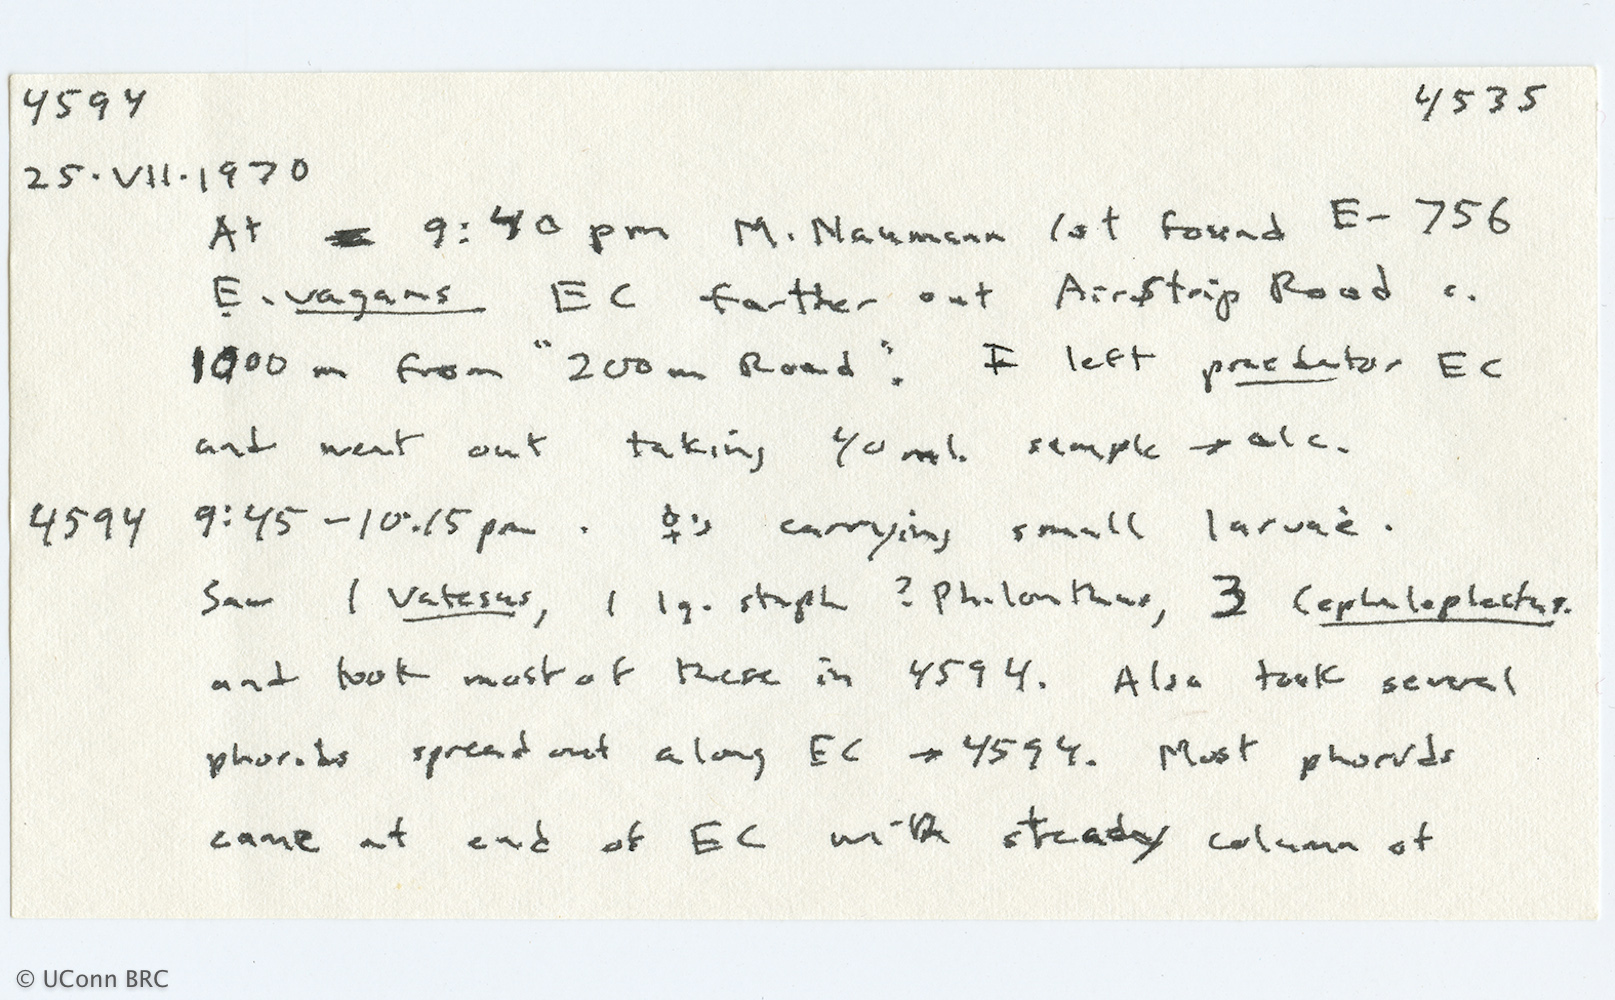 4594 4535
25.VII.1970
At 9:40 pm M. Naumann 1st found E-756
E. vagans EC farther out Airstrip Road c.
1000 m from "200 m Road". I left predator EC
and went out taking 40 ml. sample → alc.
4594 9:45-10:15 pm. ☿'s carrying small larvae.
Saw 1 Vatesus, 1 lg. staph ? Philonthus, 3 Cephaloplectus.
and took most of these in 4594. Also took several
phorids spread out along EC → 4594. Most phorids
came at end of EC with steady column of
© UConn BRC